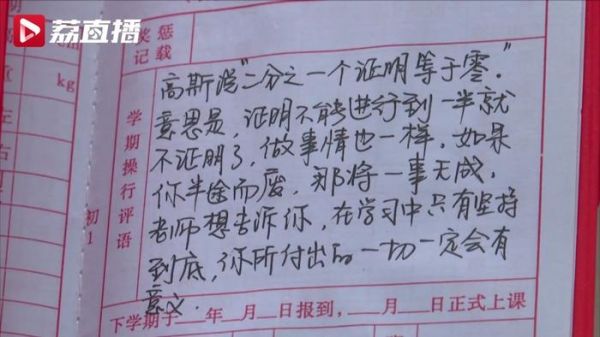 荔直播
奖惩
记载
kg
左
右
学期操行评语
初1
高斯说“二分之一个证明等于零。”
意思是，证明不能进行到一半就
不证明了，做事情也一样。如果
你半途而废，那将一事无成。
老师想告诉你，在学习中只有坚持
到底，你所付出的一切一定会有
意义．
下学期于__年__月__日报到，____月__日正式上课